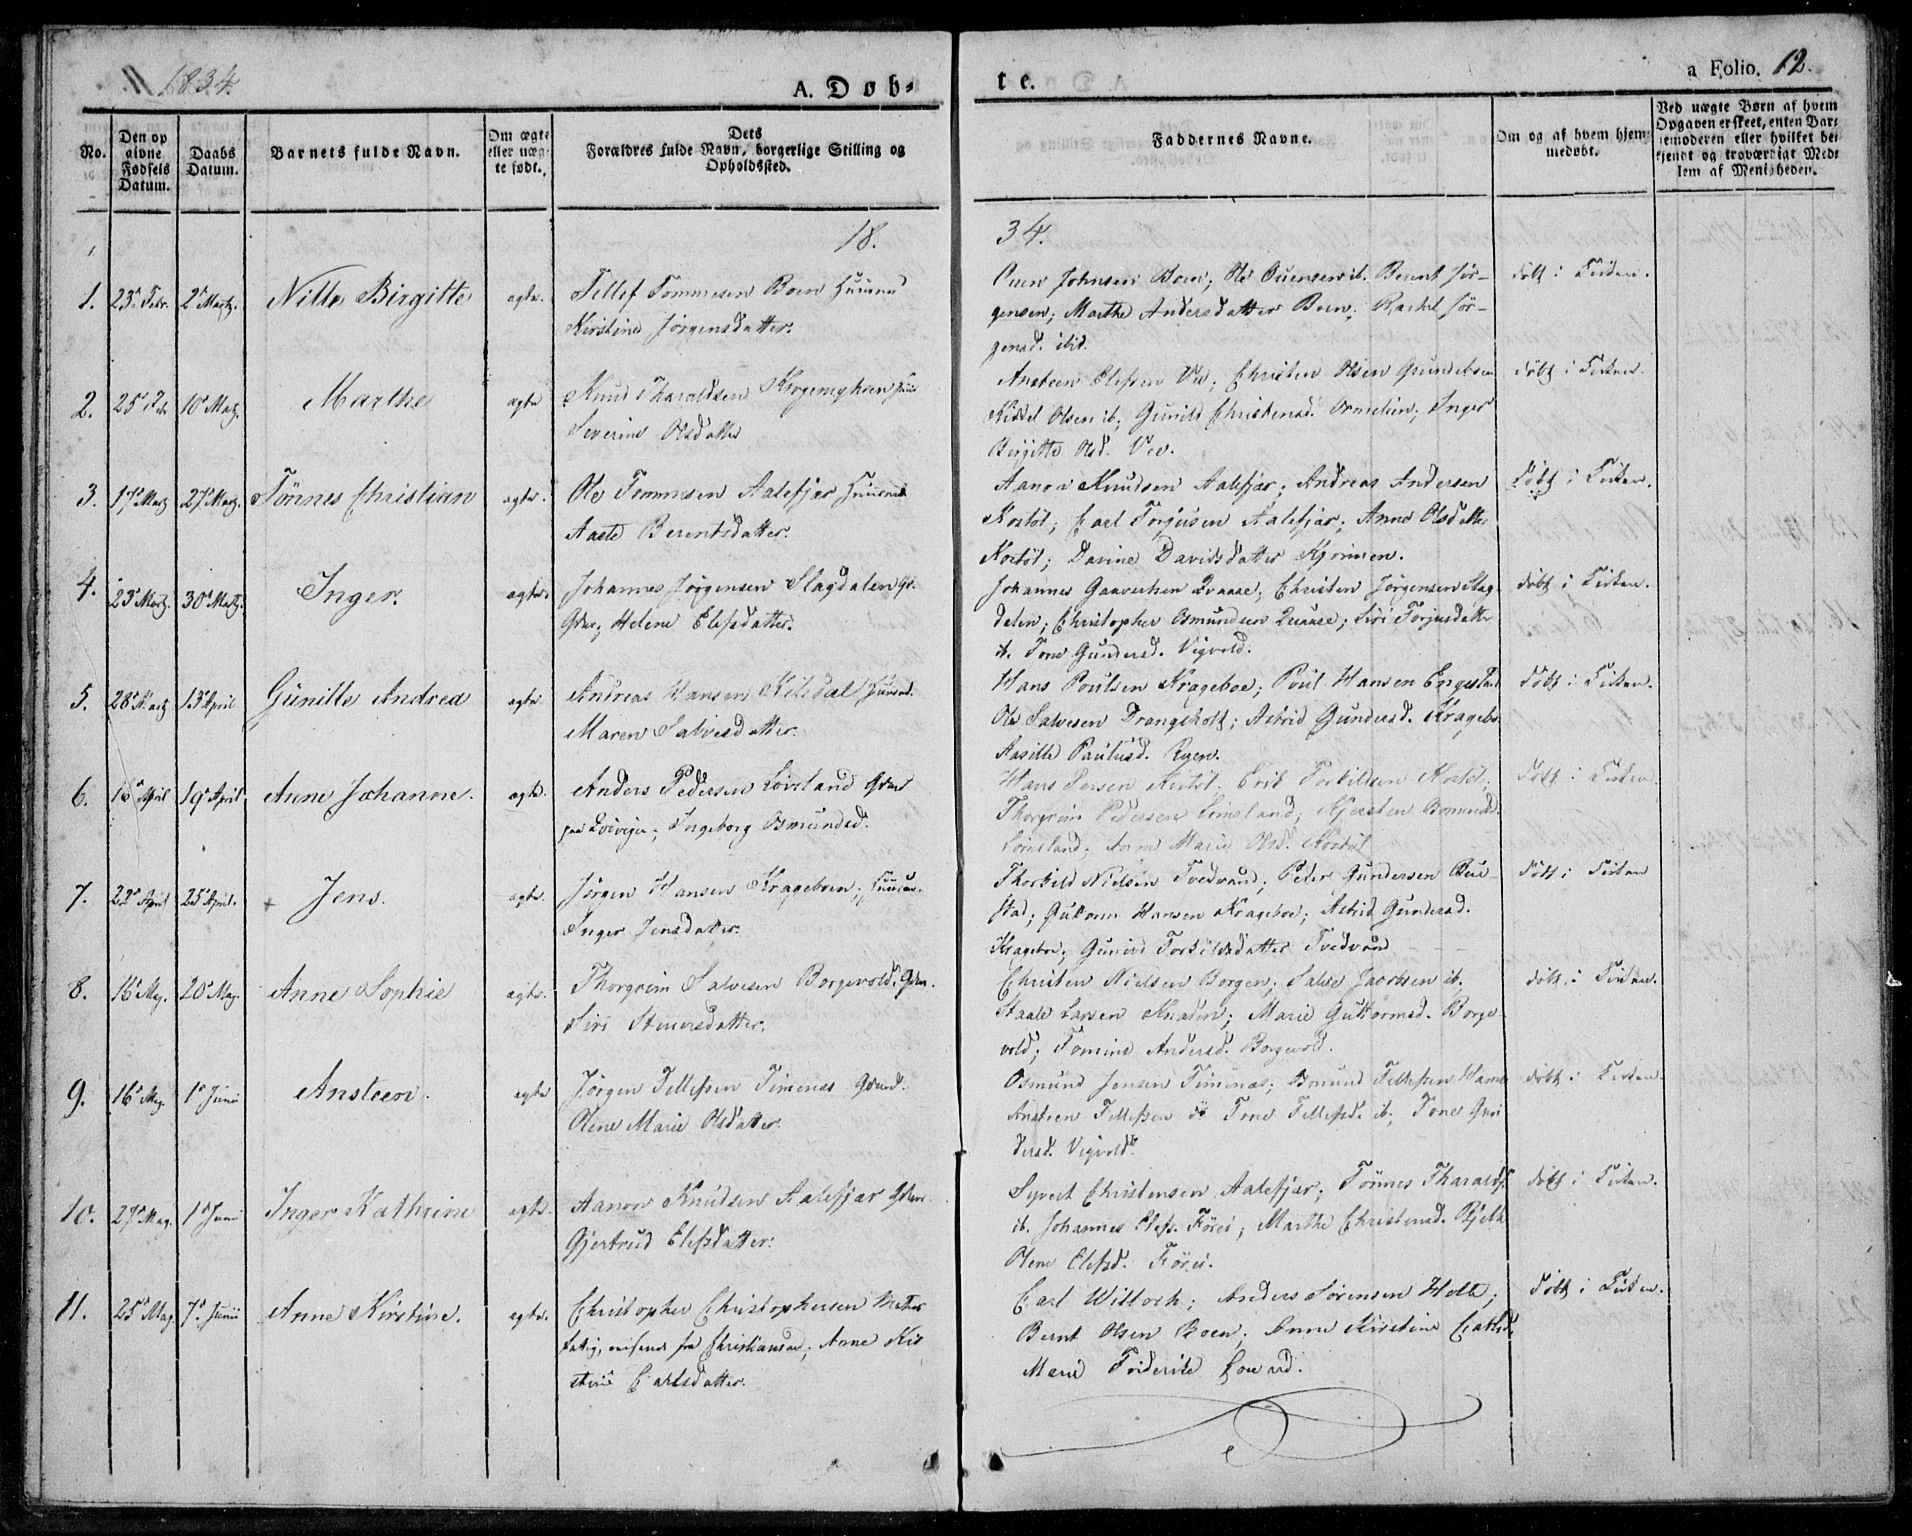 1834.
A. Døb-
te.
a Folio. 12.
No.
Den op
givne
Fødsels
Datum.
Daabs
Datum.
Barnets fulde Navn.
Om ægte
eller uæg-
te født.
Dets
Forældres fulde Navn, borgerlige Stilling og
Opholdssted.
Faddernes Navne.
Om og af hvem hjem-
medøbt.
Ved uægte Børn af hvem
Opgaven er skeet, enten Bar-
nemoderen eller hvilket be-
kjendt og troværdigt Med-
lem af Menigheden.
18.
34.
1. 23. Febr. 2 Martz. Nille Birgitte ægte. Tellef Tommesen Boen
Kirstine Jørgensdatter.
Ouen Johnsen Boen; Ole Ouensen ib. Bernt Jør-
gensen; Marthe Andersdatter Boen; Rachel Jør-
gensd. ibid.
døbt i Kirken.
2. 25 Feb 10 Martz. Marthe ægte Knud Tharaldsen
Severine Olsdatter
Ansteen Elefsen Ve; Christen Olsen
Kittel Olsen ib; Gunild Christensd. Inger
Birgitte Olsd. Vee.
døbt i Kirken.
3. 17 Martz 27 Martz. Tønnes Christian ægte. Ole Tommesen Aalefjær Huusmd
Aaste Berentsdatter.
Aanon Knudsen Aalefjær; Andreas Andersen
Kostøl; Carl Torjusen Aalefjær; Anne Olsdatter
Kostøl; Davine Davidsdatter
døbt i Kirken.
4. 23 Martz. 30 Martz. Inger. ægte. Johannes Jørgensen Slagdalen
Helene Elefsdatter.
Johannes Qvaase; Christen Jørgensen Slag-
dalen; Christopher Osmundsen Qvaase; Siri Torjusdatter
ib. Tone Gundersd. Vigvold.
døbt i Kirken.
5. 28 Martz 13 April Gunille Andrea ægte. Andreas Hansen Kilsdal Huusmd.
Maren Salvesdatter.
Hans Poulsen Krageboe; Poul Hansen Engestad
Ole Salvesen Drangsholt; Astrid Gundersd. Krageboe
Aasille Paulusd. Ryen.
døbt i Kirken.
6. 16 April 19 April Anne Johanne. ægte. Anders Pedersen
Ingeborg Osmundsd.
Hans Kostøl; Erik Torkilsen Kostøl;
Thorgrim Pedersen Kjersten Osmundsd.
Anne Marie Olsd. Kostøl
døbt i Kirken
7. 22 April 25 April. Jens. ægte. Jørgen Hansen Krageboen; Huusm.
Inger Jensdatter.
Thorkild Nielsen Tvedvand; Peder Gundersen Bue-
stad; Guttorm Hansen Krageboe; Astrid Gundersd.
Krageboe; Gunild Torkildsdatter Tvedvand
døbt i Kirken
8. 20 May. Anne Sophie ægte. Thorgrim Salvesen Borgevold.
Siri Steenersdatter.
Christen Nielsen Borgen; Salve Jacobsen ib.
Staale Larsen Knaden; Marie Guttormsd. Borge-
vold; Tomine Andersd. Borgevold.
døbt i Kirken.
9. 16 May. 1 Junii Ansteen. ægte Jørgen Tellefsen Timenæs Gdmd.
Olene Marie Olsdatter.
Osmund Jensen Timenæs; Osmund Tellefsen
Ansteen Tellefsen Tone Tellefsd. ib; Tone Gun-
dersd. Vigvold.
døbt i Kirken.
10. 27 May. 1 Junii Inger Kathrine ægte. Aanon Knudsen Aalefjær
Gjertrud Elefsdatter.
Syvert Christensen Aalefjær; Tønnes Tharalds.
ib. Johannes Elefs. Føreé; Marthe Christensd.
Olene Elefsd.
døbt i Kirken.
11. 25 May 7 Junii Anne Kirstine. ægte. Christopher Christophersen
fra Christiansand; Anne Kir-
stine Carlsdatter.
Carl Willoch; Anders Sørensen Holte;
Bernt Olsen Boen; Anne Kirstine
Marie Friderike
døbt i Kirken.